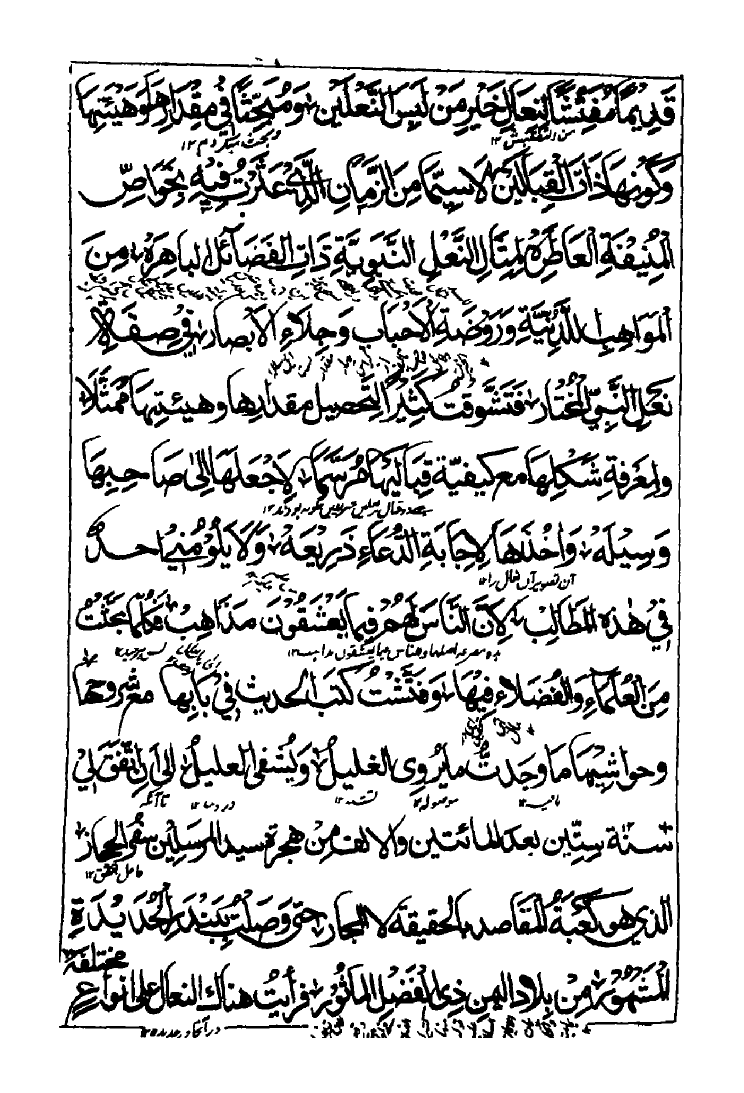 قَدِيْمًا مُفَتِّشًا لِنِعَالِ خَيْرِ مَنْ لَبِسَ النَّعْلَيْنِ وَمُبَحِّثًا فِيْ مِقْدَارِهَا وَهَيْئَتِهَا
من التفتيش ۱۲
وَكَوْنِهَا ذَاتَ الْقِبَالَيْنِ لَاسِيَّمَا مِنَ الزَّمَانِ الَّذِيْ عَثَرْتُ فِيْهِ بِخَوَاصِّ
الْمُنِيْفَةِ الْعَاطِرَةِ لِمِثَالِ النَّعْلِ النَّبَوِيَّةِ ذَاتِ الْفَضَائِلِ الْبَاهِرَةِ مِنَ
الْمَوَاهِبِ اللَّدُنِّيَّةِ وَرَوْضَةِ الْأَحْبَابِ وَجِلَاءِ الْأَبْصَارِ فِيْ صِفَةِ
نَعْلِ النَّبِيِّ الْمُخْتَارِ فَتَشَوَّقْتُ كَثِيْرًا لِتَحْصِيْلِ مِقْدَارِهَا وَهَيْئَتِهَا مُمَثَّلًا
وَلِمَعْرِفَةِ شَكْلِهَا مَعَ كَيْفِيَّةِ قِبَالَيْهَا مُرَسَّمًا لِاَجْعَلَهَا اِلٰى صَاحِبِهَا
وَسِيْلَةً وَاٰخُذَهَا لِاِجَابَةِ الدُّعَاءِ ذَرِيْعَةً وَلَا يَلُوْمُنِيْ اَحَدٌ
آن تصوير آن نعال را ۱۲
فِيْ هٰذِهِ الْمَطَالِبِ لِاَنَّ النَّاسَ لَهُمْ فِيْمَا يَعْشَقُوْنَ مَذَاهِبُ فَلَمَّا بَحَثْتُ
مِنَ الْعُلَمَاءِ وَالْفُضَلَاءِ فِيْهَا وَفَتَّشْتُ كُتُبَ الْحَدِيْثِ فِيْ بَابِهَا مَعَ شُرُوْحِهَا
وَحَوَاشِيْهَا مَا وَجَدْتُ مَا يُرْوِي الْغَلِيْلَ وَيُشْفِي الْعَلِيْلَ اِلٰى اَنِ اتَّفَقَ لِيْ
نافيه ۱۲ موصوله ۱۲ تشنه ۱۲ تا آنكه
سَنَةَ سِتِّيْنَ بَعْدَ الْمِائَتَيْنِ وَالْاَلْفِ مِنْ هِجْرَةِ سَيِّدِ الْمُرْسَلِيْنَ سَفَرُ الْحِجَازِ
فاعل اتفق ۱۲
الَّذِيْ هُوَ كَعْبَةُ الْمَقَاصِدِ بِالْحَقِيْقَةِ لَا الْمَجَازِ حَتّٰى وَصَلْتُ بِبَنْدَرِ الْحُدَيْدَةِ
الْمَشْهُوْرِ مِنْ بِلَادِ الْيَمَنِ ذِي الْفَضْلِ الْمَأْثُوْرِ فَرَأَيْتُ هُنَاكَ النِّعَالَ عَلٰى اَنْوَاعٍ مُخْتَلِفَةٍ